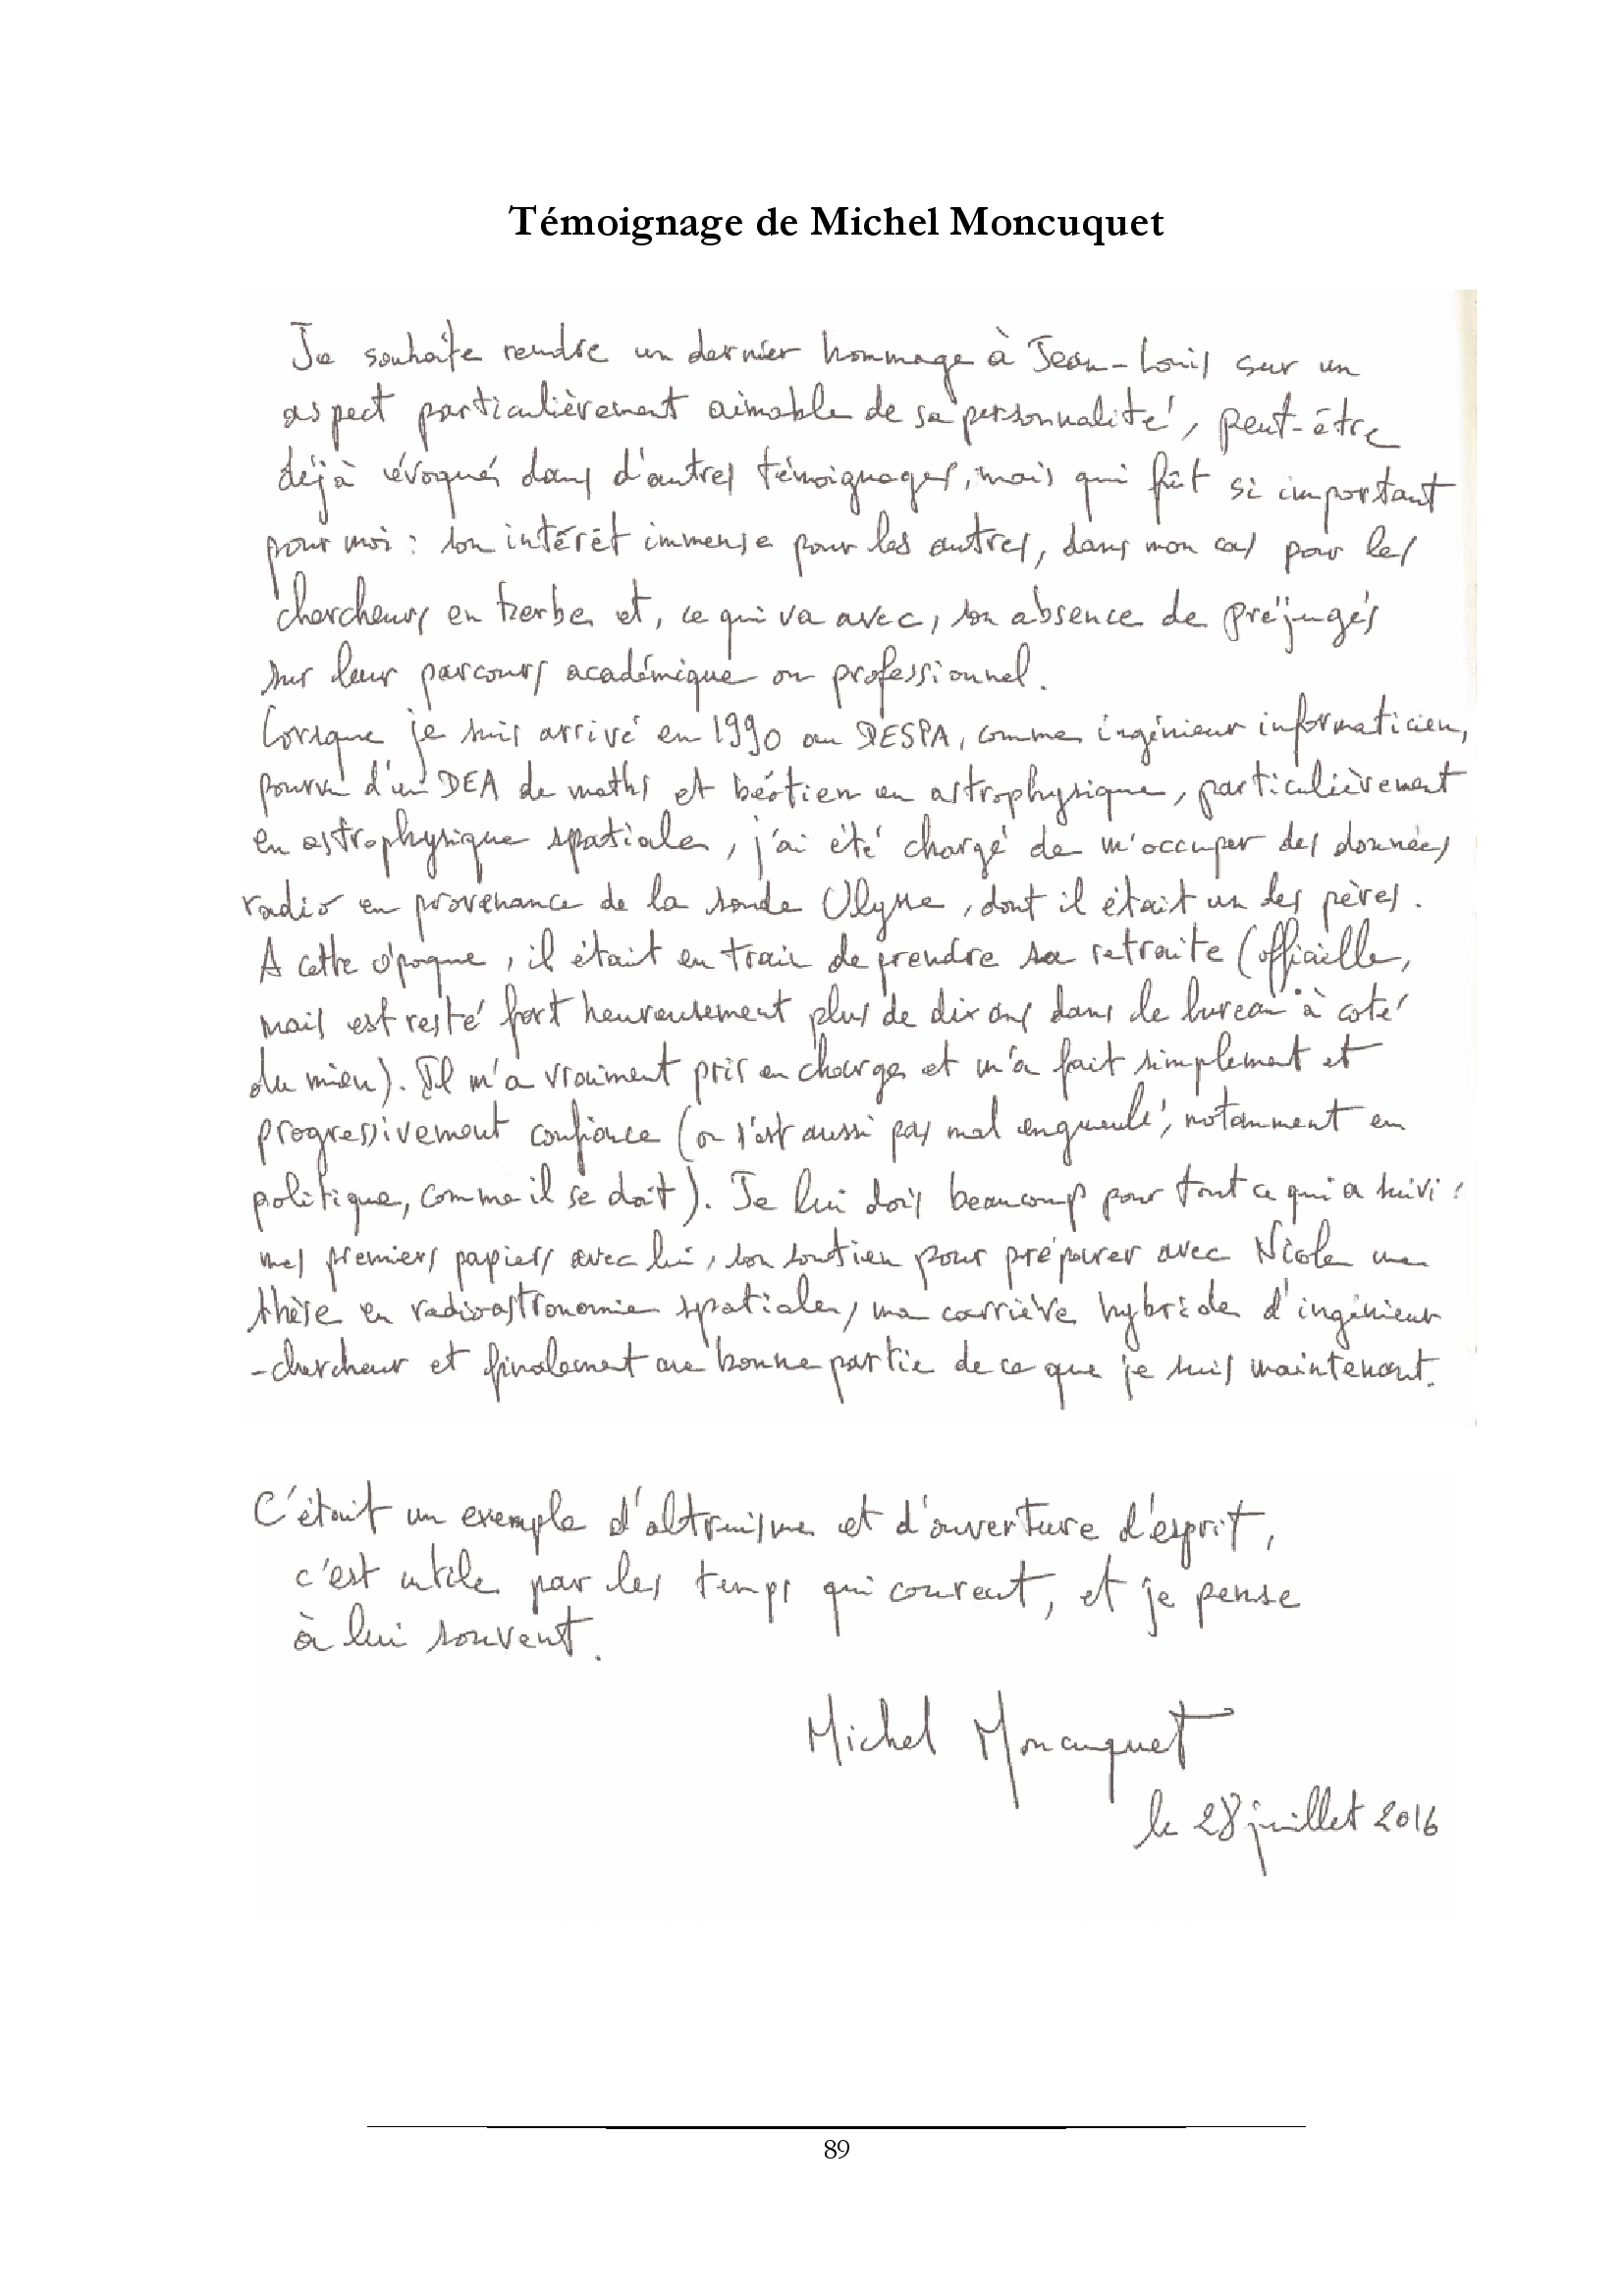 Témoignage de Michel Moncuquet
Je souhaite rendre un dernier hommage à Jean-Louis sur un
aspect particulièrement aimable de sa personnalité, peut-être
déjà évoqué dans d'autres témoignages, mais qui fût si important
pour moi : son intérêt immense pour les autres, dans mon cas pour les
chercheurs en herbe et, ce qui va avec, son absence de préjugés
sur leur parcours académique ou professionnel.
Lorsque je suis arrivé en 1990 au DESPA, comme ingénieur informaticien,
pourvu d'un DEA de maths et béotien en astrophysique, particulièrement
en astrophysique spatiale, j'ai été chargé de m'occuper des données
radio en provenance de la sonde Ulysse, dont il était un des pères.
A cette époque, il était en train de prendre sa retraite (officielle,
mais est resté fort heureusement plus de dix ans dans le bureau à coté
du mien). Il m'a vraiment pris en charge et m'a fait simplement et
progressivement confiance (on s'est aussi pas mal engueulé, notamment en
politique, comme il se doit). Je lui dois beaucoup pour tout ce qui a suivi :
mes premiers papiers avec lui, son soutien pour préparer avec Nicole une
thèse en radioastronomie spatiale, ma carrière hybride d'ingénieur
-chercheur et finalement une bonne partie de ce que je suis maintenant.
C'était un exemple d'altruisme et d'ouverture d'esprit,
c'est utile par les temps qui courent, et je pense
à lui souvent.
Michel Moncuquet
le 28 juillet 2016
89